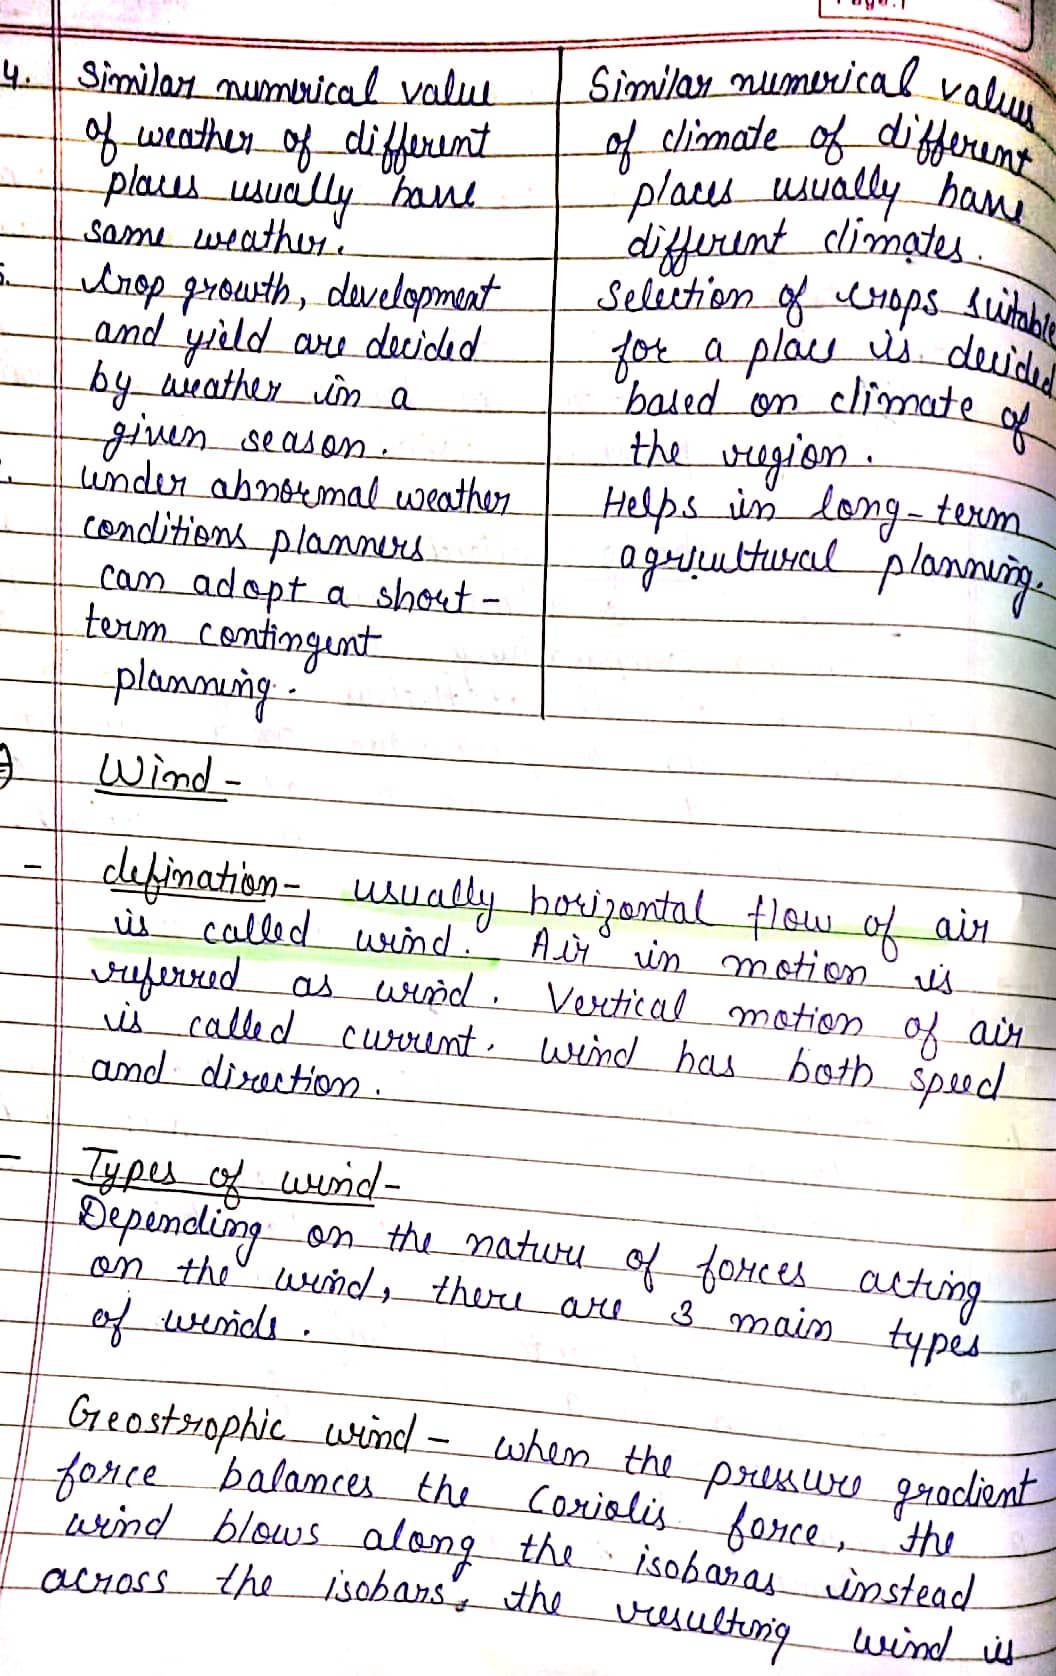 4. Similar numerical value
of weather of different
places usually have
same weather.
5. Crop growth, development
and yield are decided
by weather in a
given season.
under abnormal weather
conditions planners
can adopt a short-
term contingent
planning.
Similar numerical values
of climate of different
places usually have
different climates.
Selection of crops suitable
for a place is decided
based on climate of
the region.
Helps in long-term
agricultural planning.
Wind-
- defination- usually horizontal flow of air
is called wind. Air in motion is
referred as wind. Vertical motion of air
is called current. wind has both speed
and direction.
- Types of wind-
Depending on the nature of forces acting
on the wind, there are 3 main types
of winds.
Geostrophic wind- when the pressure gradient
force balances the coriolis force, the
wind blows along the isobaras instead
across the isobars, the resulting wind is